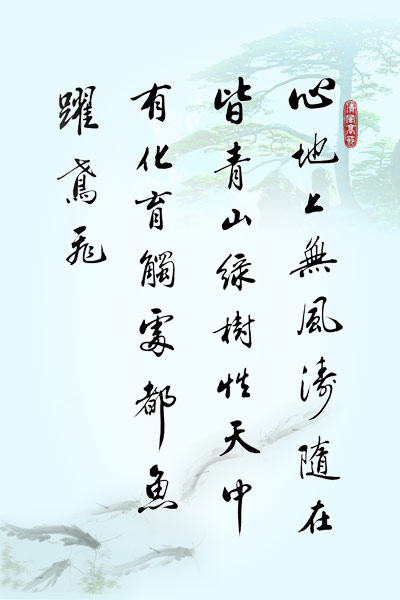 心地上無風濤隨在
皆青山綠樹性天中
有化育觸處都魚
躍鳶飛